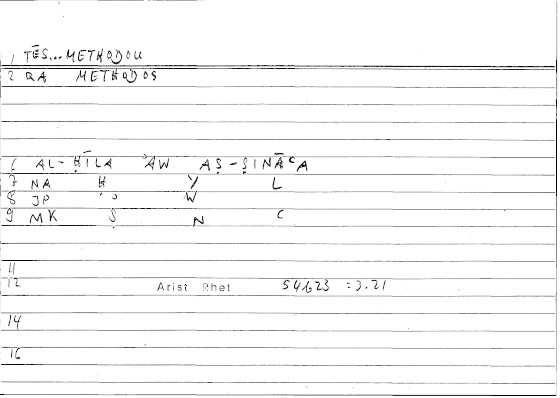 1 TĒS...METHODOU
2 QA METHODOS
6 AL-ḤĪLA ʾAW AṢ-ṢINĀʿA
7 NA Ḥ Y L
8 JP ʾ W
9 MK Ṣ N ʿ
11
12 Arist Rhet 54b23 =3.21
14
16